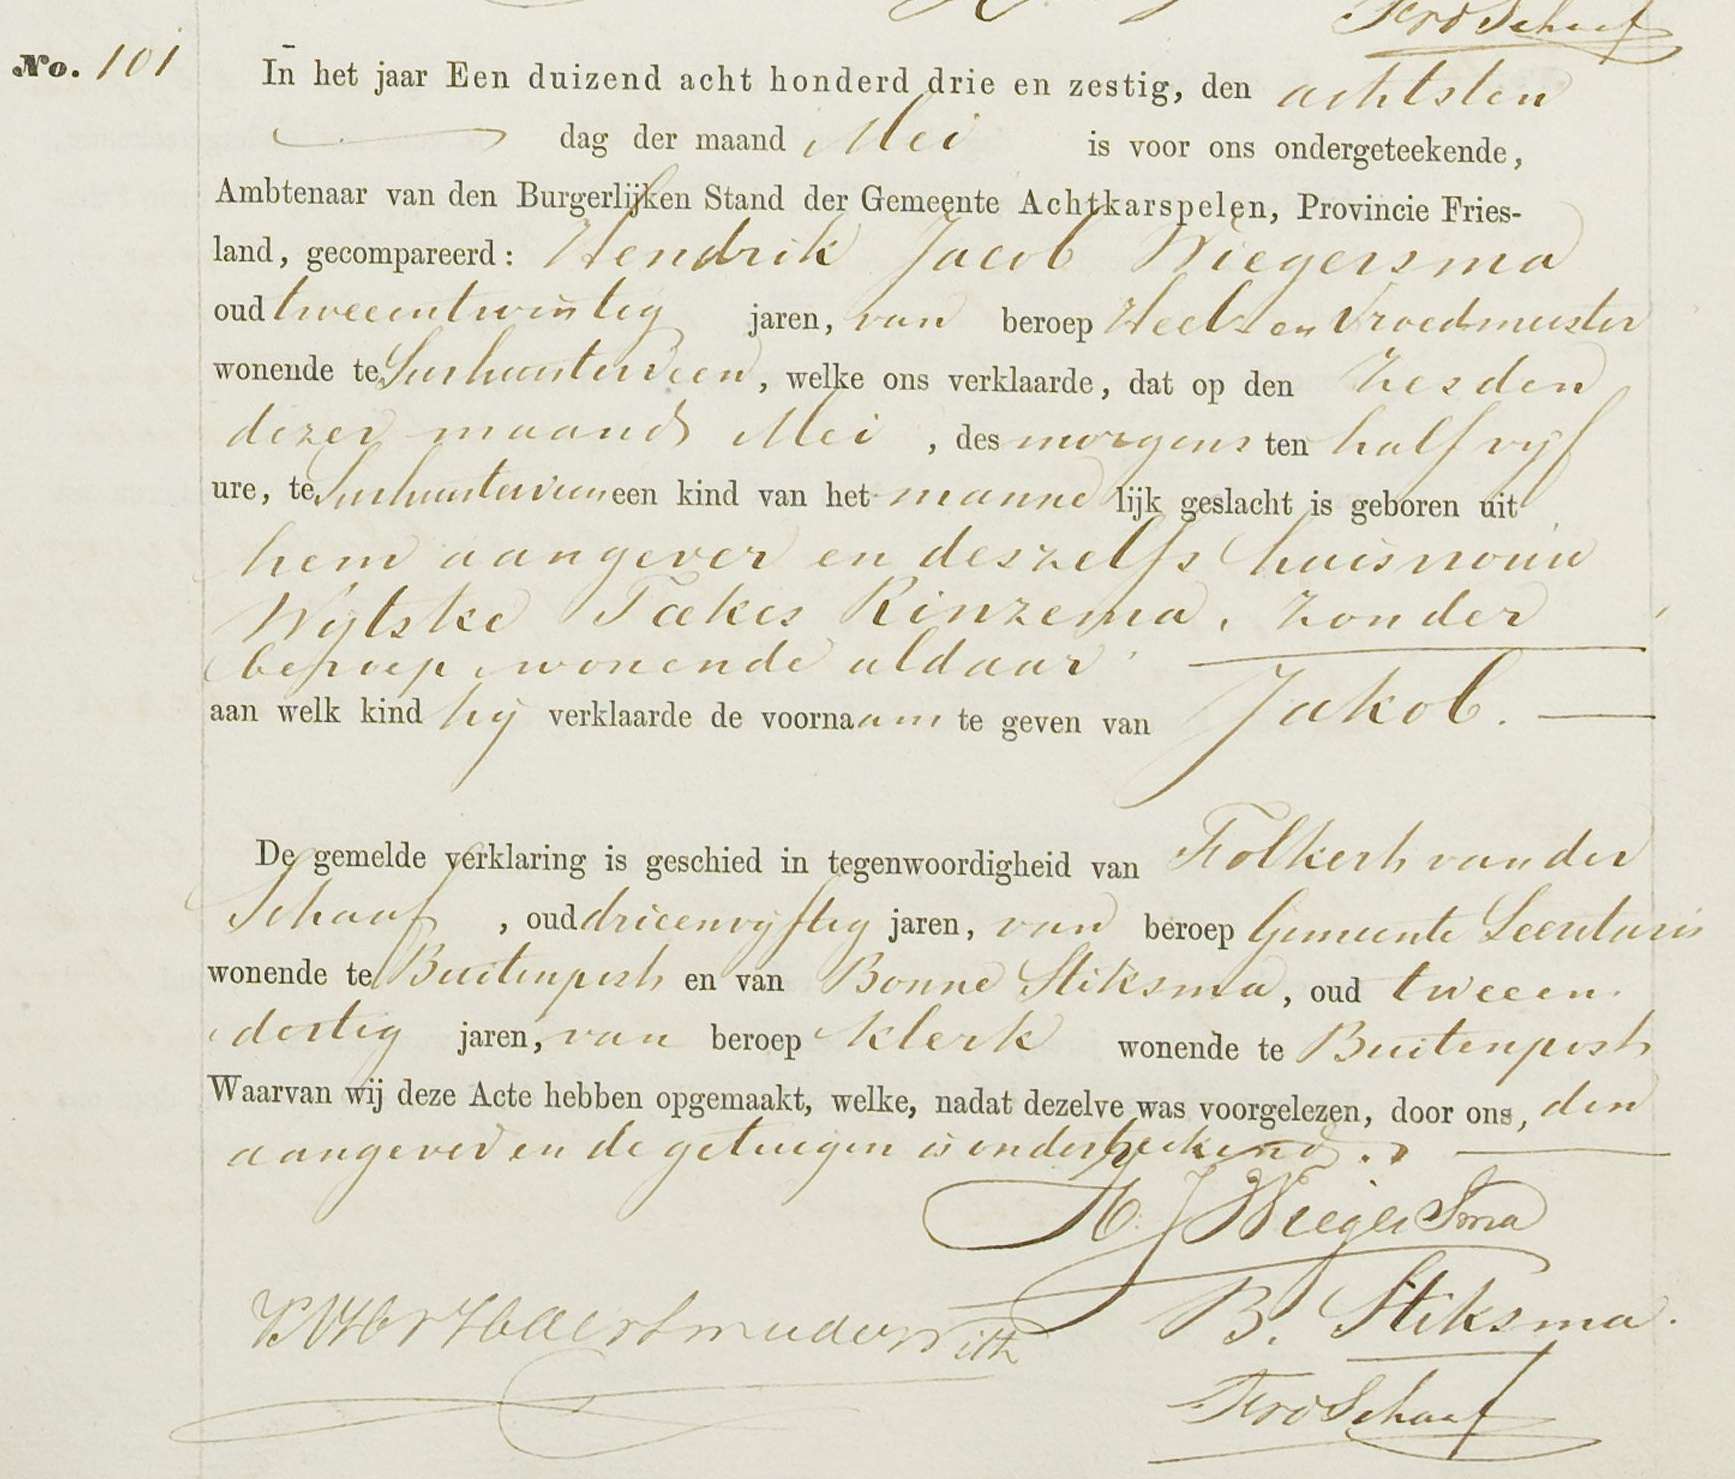 FvdSchaaf
No. 101
In het jaar Een duizend acht honderd drie en zestig, den achtsten
dag der maand Mei is voor ons ondergeteekende,
Ambtenaar van den Burgerlijken Stand der Gemeente Achtkarspelen, Provincie Fries-
land, gecompareerd: Hendrik Jacob Wiegersma
oud tweeentwintig jaren, van beroep Heel en Vroedmeester
wonende te Surhuisterveen, welke ons verklaarde, dat op den zesden
dezer maand Mei, des morgens ten half vijf
ure, te Surhuisterveen een kind van het mannelijk geslacht is geboren uit
hem aangever en deszelfs huisvrouw
Wytske Taekes Rinzema, zonder
beroep, wonende aldaar
aan welk kind hij verklaarde de voornaam te geven van Jakob.
De gemelde verklaring is geschied in tegenwoordigheid van Folkert van der
Schaaf, oud drieenvijftig jaren, van beroep Gemeente Secretaris
wonende te Buitenpost en van Bonne Stiksma, oud tweeen
dertig jaren, van beroep klerk wonende te Buitenpost
Waarvan wij deze Acte hebben opgemaakt, welke, nadat dezelve was voorgelezen, door ons, den
aangever en de getuigen is onderteekend.
H. J Wiegersma
B. Stiksma.
FvdSchaaf